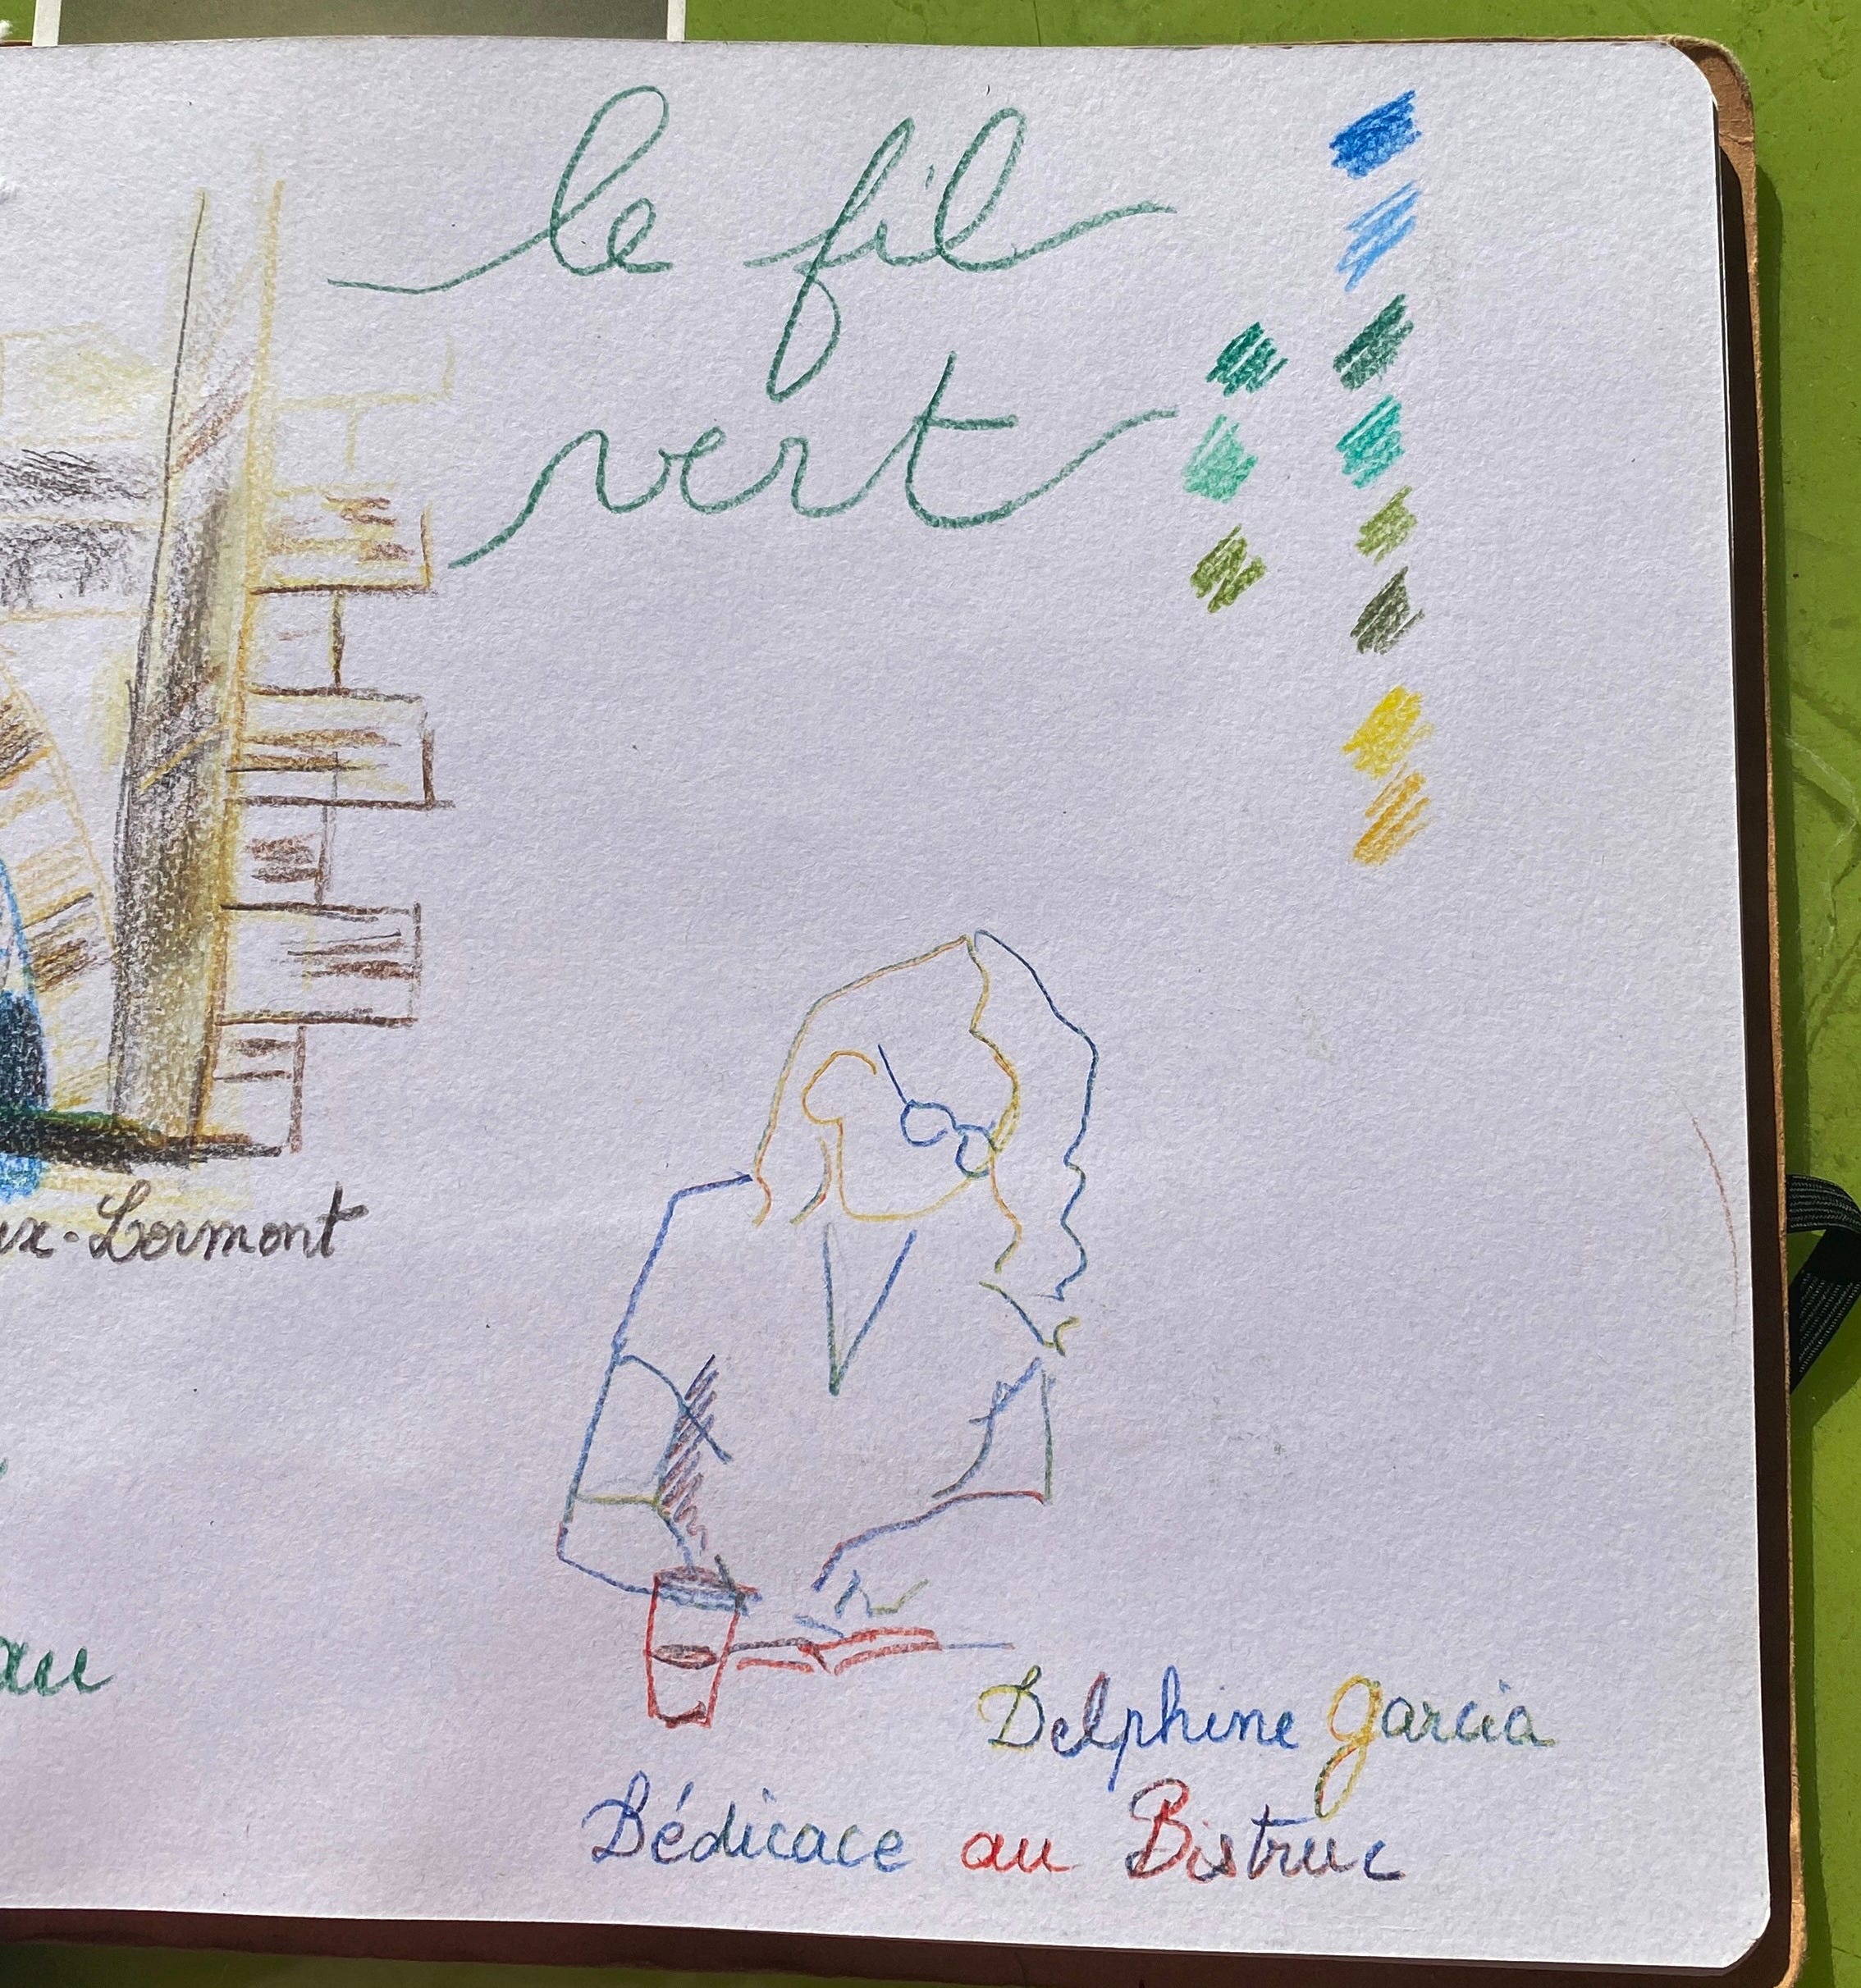 le fil
vert
Lormont
au
Delphine Garcia
Dédicace au Bistruc